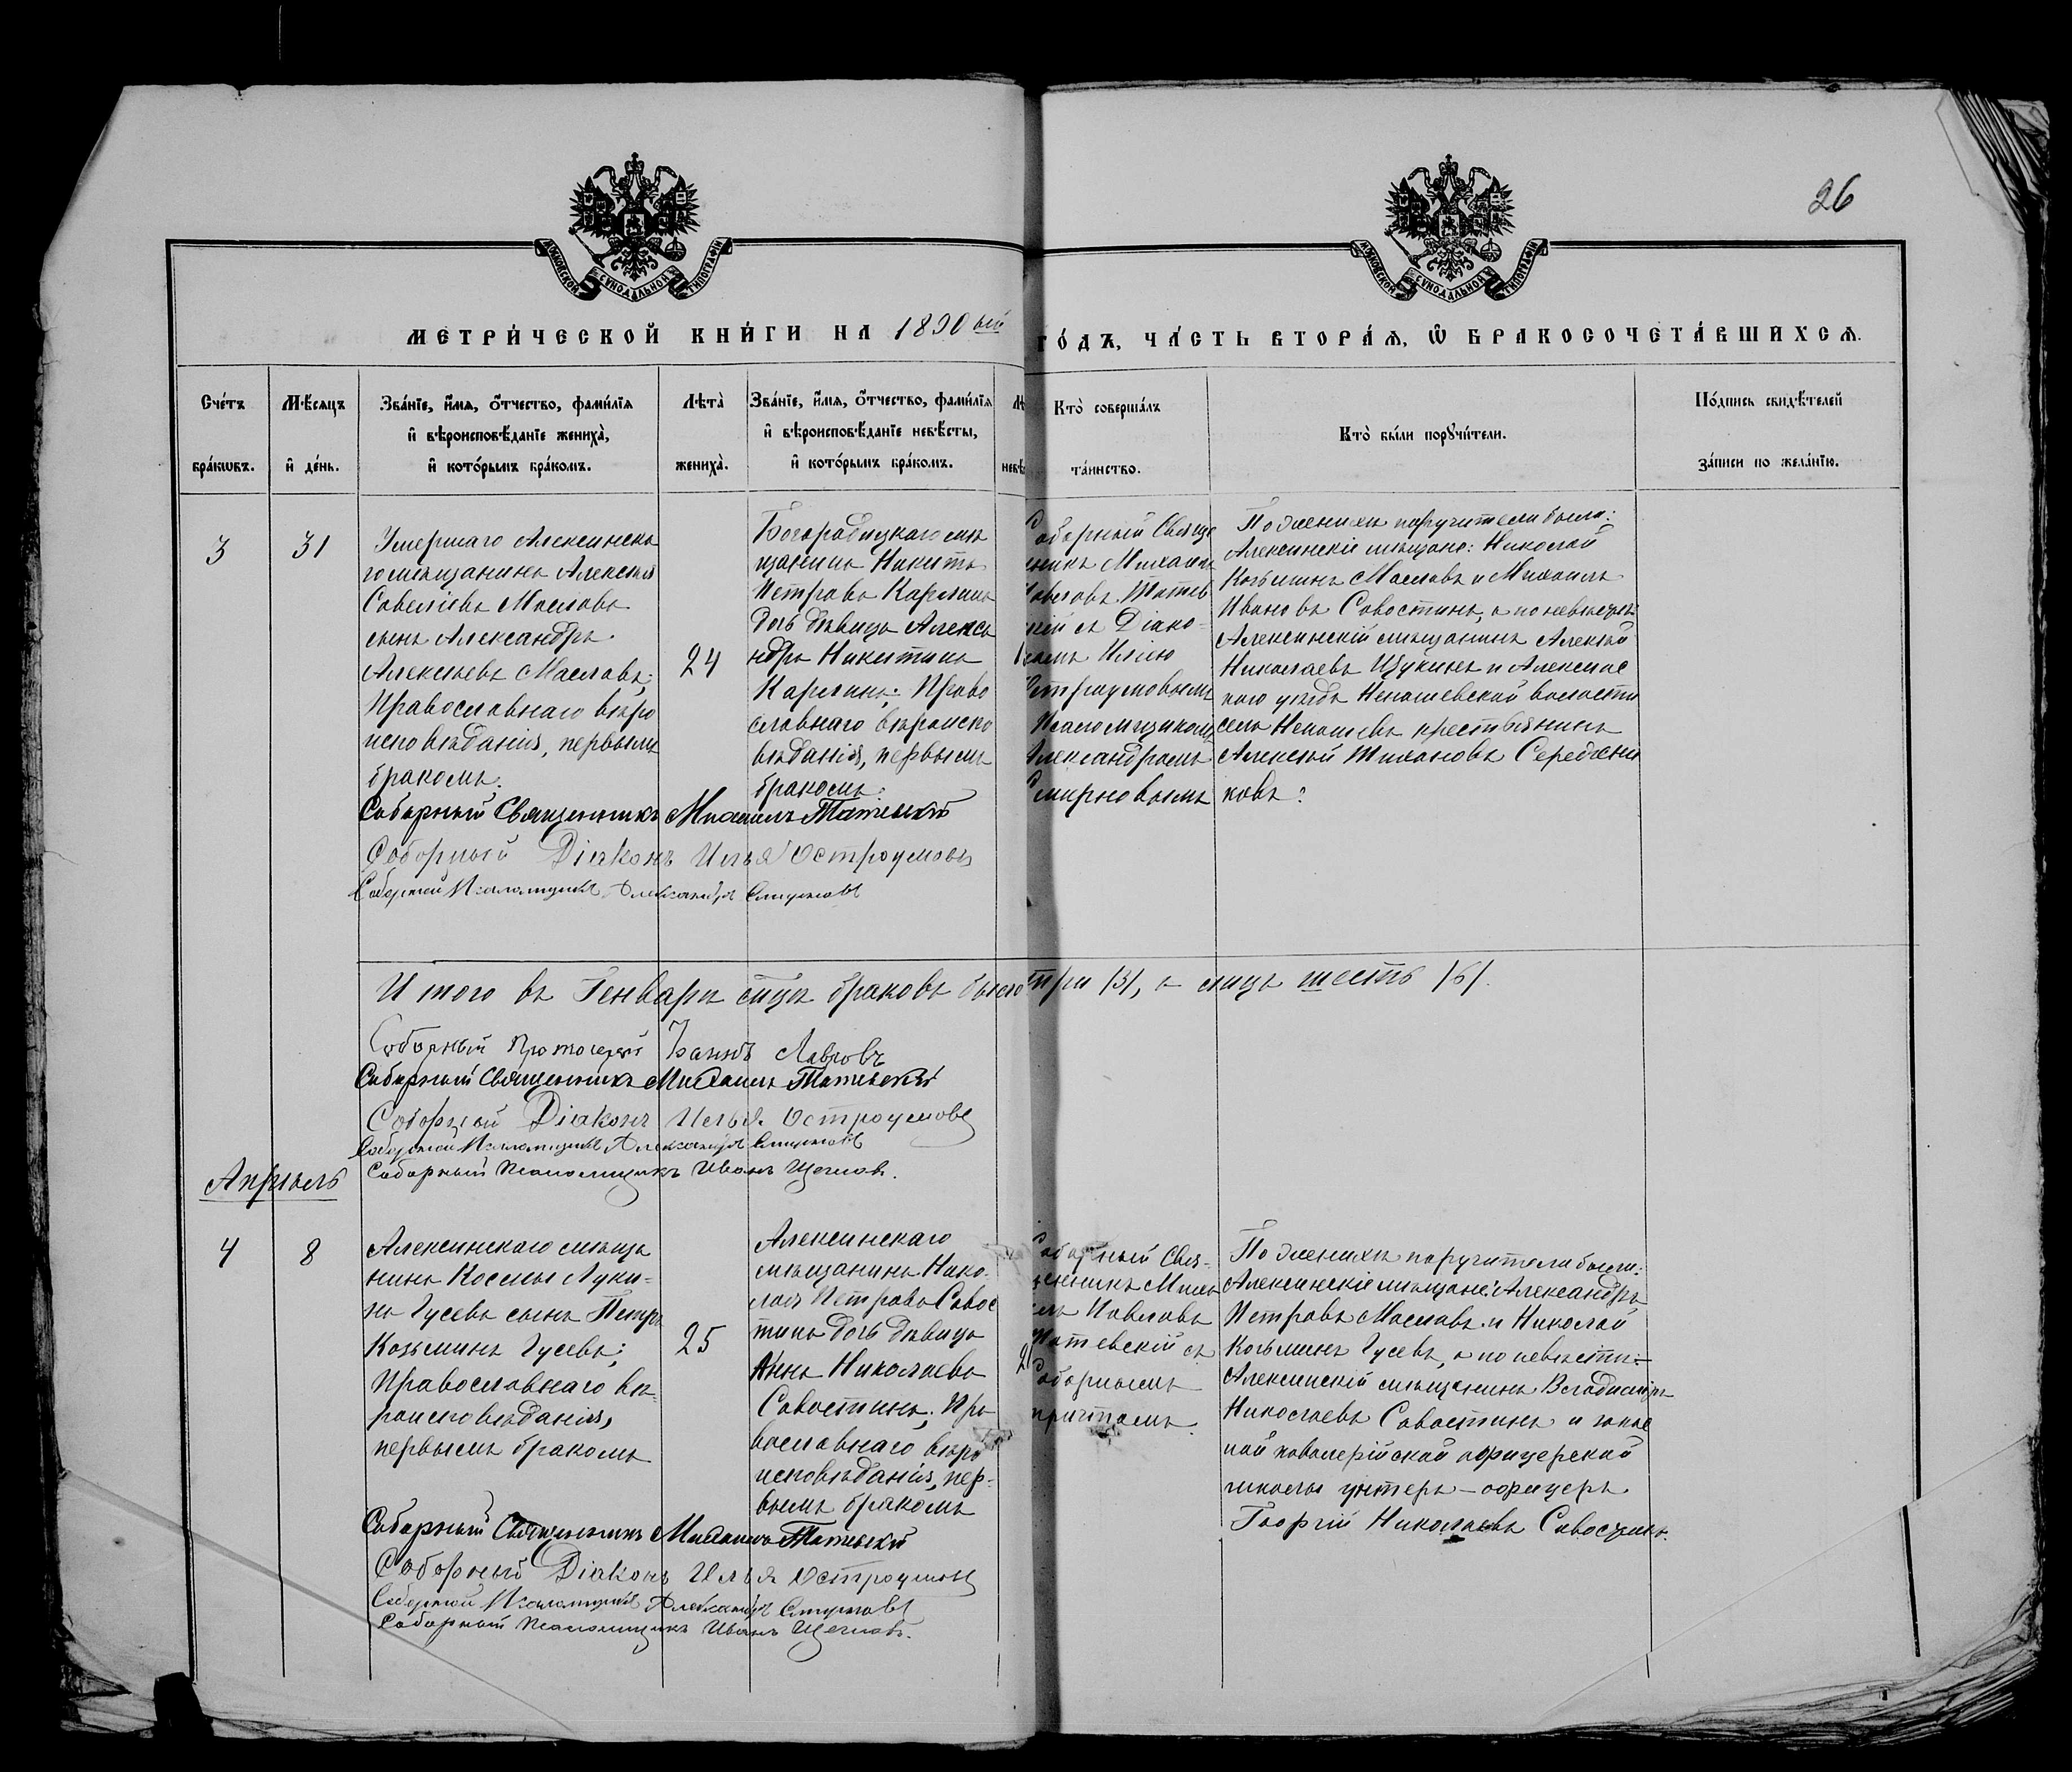 26
МОСКОВСКОЙ СѴНОДАЛЬНОЙ ТИПОГРАФІИ
МОСКОВСКОЙ СѴНОДАЛЬНОЙ ТИПОГРАФІИ
МЕТРИ́ЧЕСКОЙ КНИ́ГИ НА 1890ый
ГО́ДЪ, ЧА́СТЬ ВТОРА́Я, Ѽ БРАКОСОЧЕТА́ВШИХСЯ.
Сче́тъ
бра́кѡвъ.
Мѣ́сяцъ
и҆ де́нь.
Зва́нїе, и҆́мя, ѻ҆́тчество, фами́лїя
и҆ вѣроисповѣ́данїе жениха̀,
и҆ кото́рымъ бра́комъ.
Лѣта̀
жениха̀.
Зва́нїе, и҆́мя, ѻ҆́тчество, фами́лїя
и҆ вѣроисповѣ́данїе невѣ́сты,
и҆ кото́рымъ бра́комъ.
Кто̀ соверша́лъ
та́инство.
Кто̀ бы́ли порꙋчи́тели.
По́дпись свидѣ́телей
за́писи по жела́нїю.
3
31
Умершаго Алексинска
го мѣщанина Алексѣя
Савеліева Маслова
сынъ Александръ
Алексѣевъ Масловъ;
Православнаго вѣро
исповѣданія, первымъ
бракомъ.
24
Богородицкаго мѣ
щанина Никиты
Петрова Карлина
дочь дѣвица Алекса
ндра Никитина
Карлина; Право
славнаго вѣроиспо
вѣданія, первымъ
бракомъ.
оборный Свяще
нникъ Михаилъ
авловъ Татев
скій съ Діако-
номъ Иліею
строумовымъ
Псаломщикомъ
Александромъ
Смирновымъ
По женихѣ поручители были:
Алексинскіе мѣщане: Николай
Козьминъ Масловъ и Михаилъ
Ивановъ Савостинъ, а по невѣстѣ:
Алексинскій мѣщанинъ Алексѣй
Николаевъ Щукинъ и Алексинс
каго уѣзда Ненашевской волости
села Ненашева крестьянинъ
Алексѣй Тихановъ Середени
ковъ.
Соборный Священникъ Михаилъ Татевскій
Соборный Діаконъ Илья Остроумовъ
Соборный Псаломщикъ Александръ Смирновъ
Итого въ Генварѣ мцѣ браковъ было три /3/, а лицъ шесть /6/.
Соборный Протоіерей Іоаннъ Лавровъ
Соборный Священникъ Михаилъ Татевскій
Соборный Діаконъ Илья Остроумовъ
Соборный Псаломщикъ Александръ Смирновъ
Соборный Псаломщикъ Иванъ Щегловъ.
Апрѣль
4
8
Алексинскаго мѣща
нина Космы Луки-
на Гусева сынъ Петръ
Козьминъ Гусевъ;
Православнаго вѣ-
роисповѣданія,
первымъ бракомъ
25
Алексинскаго
мѣщанина Нико-
лая Петрова Савос
тина дочь дѣвица
Анна Николаева
Савостина; Пра
вославнаго вѣро
исповѣданія, пер-
вымъ бракомъ
оборный Свя-
щенникъ Миха
илъ Павловъ
Татевскій съ
Соборнымъ
причтомъ.
По женихѣ поручители были:
Алексинскіе мѣщане: Александръ
Петровъ Масловъ и Николай
Козьминъ Гусевъ, а по невѣстѣ:
Алексинскій мѣщанинъ Владиміръ
Николаевъ Савостинъ и
кавалерійской офицерской
школы унтеръ-офицеръ
Георгій Николаевъ Савостинъ.
Соборный Священникъ Михаилъ Татевскій
Соборный Діаконъ Илья Остроумовъ
Соборный Псаломщикъ Александръ Смирновъ
Соборный Псаломщикъ Иванъ Щегловъ.